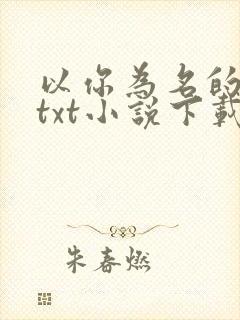 以你為名的
txt小說下載
朱春燃